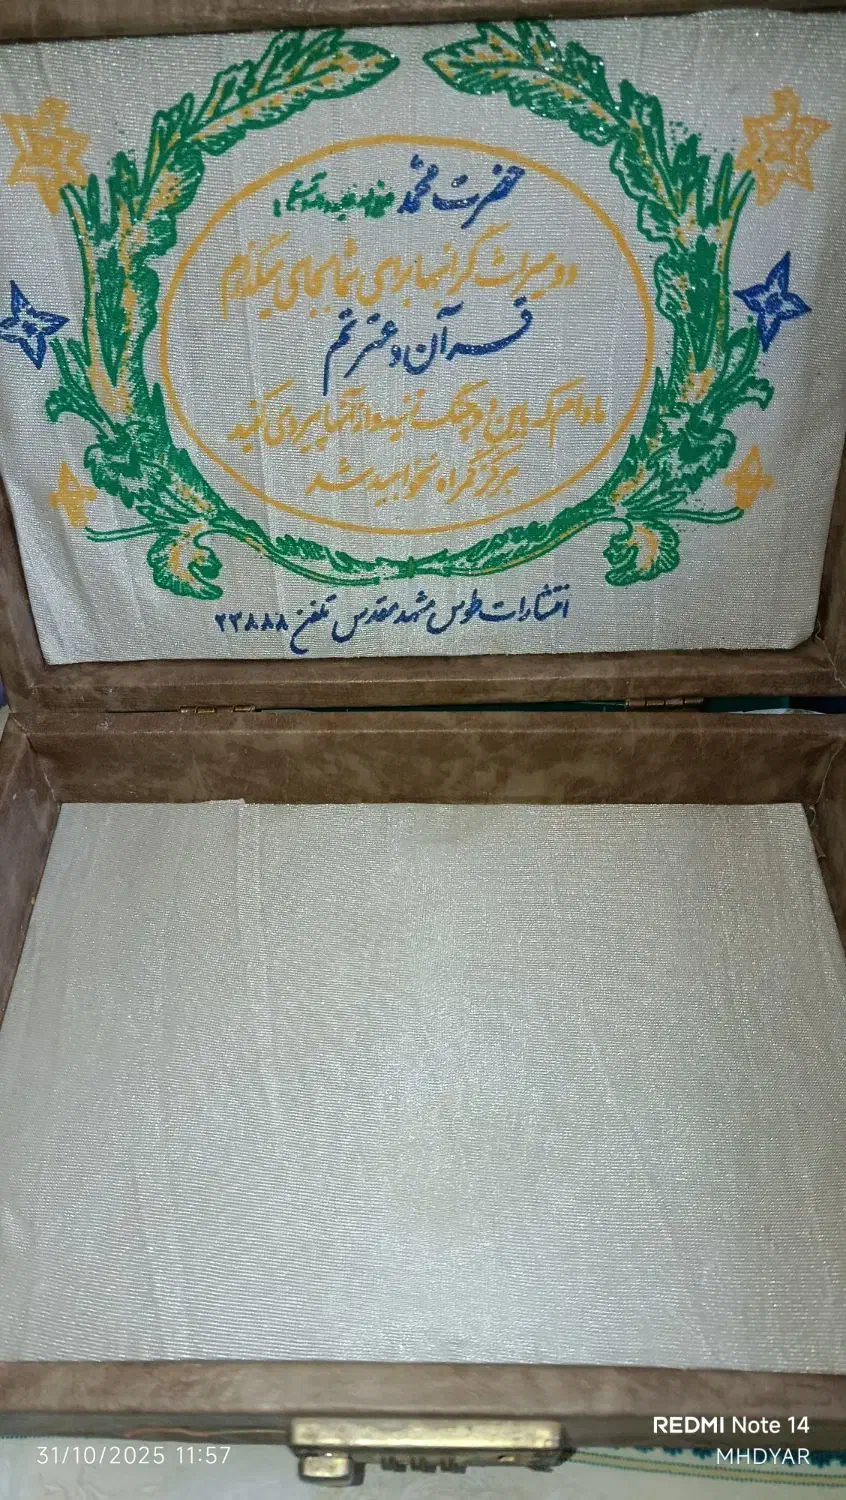 حضرت محمد صلی الله علیه و آله وسلم
دو میراث گرانبها برای شما بجای میگذارم
قرآن و عترتم
مادام که باین دو چنگ زنید و از آنها پیروی کنید
هرگز گمراه نخواهید شد
انتشارات طوس مشهد مقدس تلفن ۲۳۸۸۸
REDMI Note 14
31/10/2025 11:57 MHDYAR